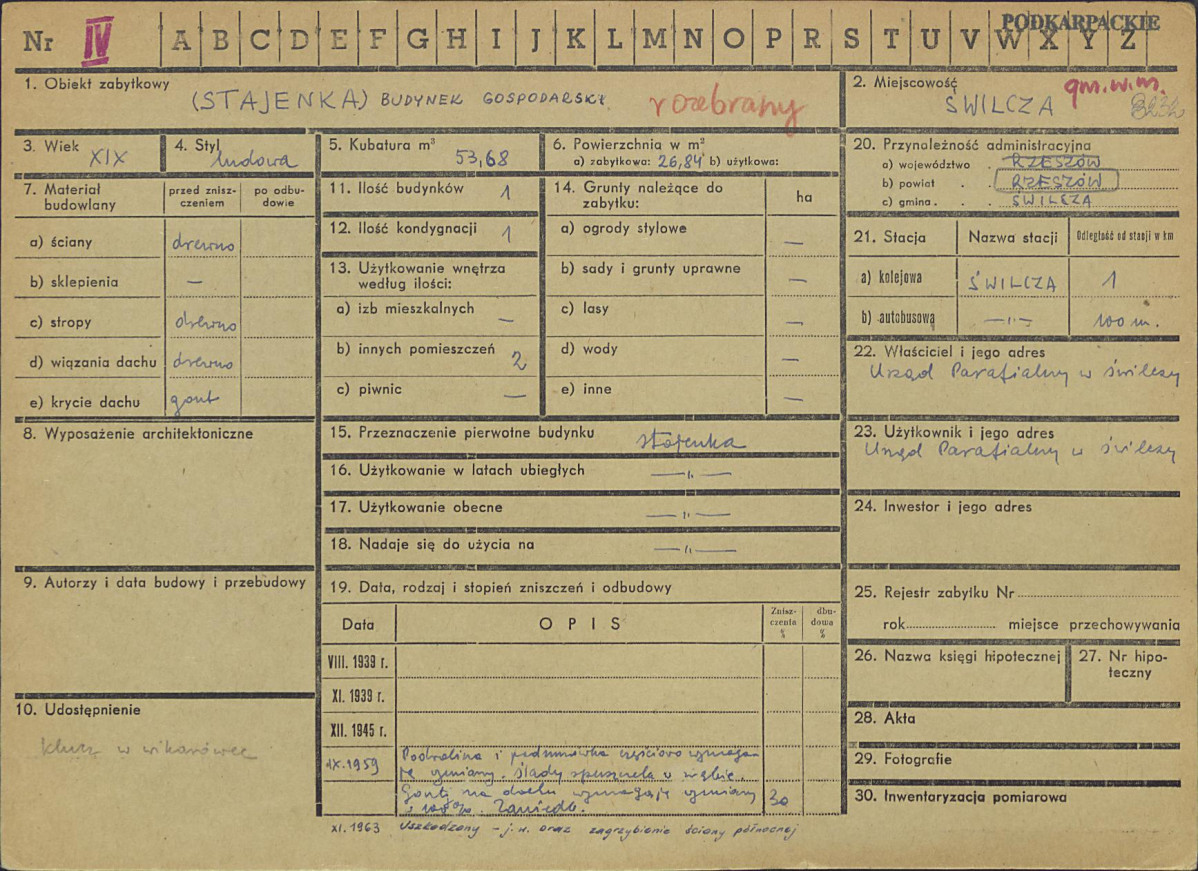 Nr IV A B C D E F G H I J K L M N O P R S T U V W X Y Z
PODKARPACKIE
1. Obiekt zabytkowy
(STAJENKA) BUDYNEK GOSPODARSKI
rozebrany
2. Miejscowość
gm.w.m.
ŚWILCZA
3. Wiek
XIX
4. Styl
ludowa
5. Kubatura m³
53,68
6. Powierzchnia w m²
a) zabytkowa: 26,84 b) użytkowa:
7. Materiał budowlany
przed zniszczeniem
po odbudowie
a) ściany drewno
b) sklepienia —
c) stropy drewno
d) wiązania dachu drewno
e) krycie dachu gont
8. Wyposażenie architektoniczne
9. Autorzy i data budowy i przebudowy
10. Udostępnienie
klucz w wikarówce
11. Ilość budynków 1
12. Ilość kondygnacji 1
13. Użytkowanie wnętrza
według ilości:
a) izb mieszkalnych —
b) innych pomieszczeń 2
c) piwnic —
14. Grunty należące do
zabytku:
ha
a) ogrody stylowe —
b) sady i grunty uprawne —
c) lasy —
d) wody —
e) inne —
15. Przeznaczenie pierwotne budynku stajenka
16. Użytkowanie w latach ubiegłych —„—
17. Użytkowanie obecne —„—
18. Nadaje się do użycia na —„—
19. Data, rodzaj i stopień zniszczeń i odbudowy
Data
OPIS
Znisz-
czenia
%
dbu-
dowa
%
VIII. 1939 r.
XI. 1939 r.
XII. 1945 r.
IX.1959 Podwalina i podsumówka częściowo wymaga-
ją wymiany. Ślady spuszczela w zrębie.
Gonty na dachu wymagają wymiany 30
w 100%. Zaniedb.
XI. 1963 Uszkodzony – j.w. oraz zagrzybienie ściany północnej
20. Przynależność administracyjna
a) województwo RZESZÓW
b) powiat RZESZÓW
c) gmina ŚWILCZA
21. Stacja
Nazwa stacji
Odległość od stacji w km
a) kolejowa ŚWILCZA 1
b) autobusową —„— 100 m.
22. Właściciel i jego adres
Urząd Parafialny w Świlczy
23. Użytkownik i jego adres
Urząd Parafialny w Świlczy
24. Inwestor i jego adres
25. Rejestr zabytku Nr
rok miejsce przechowywania
26. Nazwa księgi hipotecznej
27. Nr hipo-
teczny
28. Akta
29. Fotografie
30. Inwentaryzacja pomiarowa